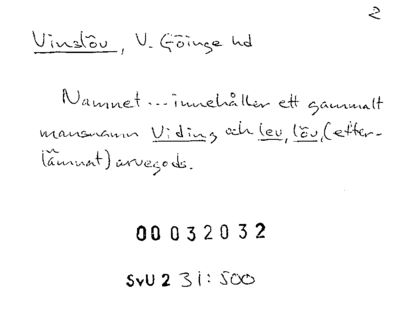 2
Vinslöv, V. Göinge hd
Namnet ... innehåller ett gammalt
mansnamn Viding och lev, löv, (efter-
lämnat) arvegods.
00032032
SvU 2 31:500